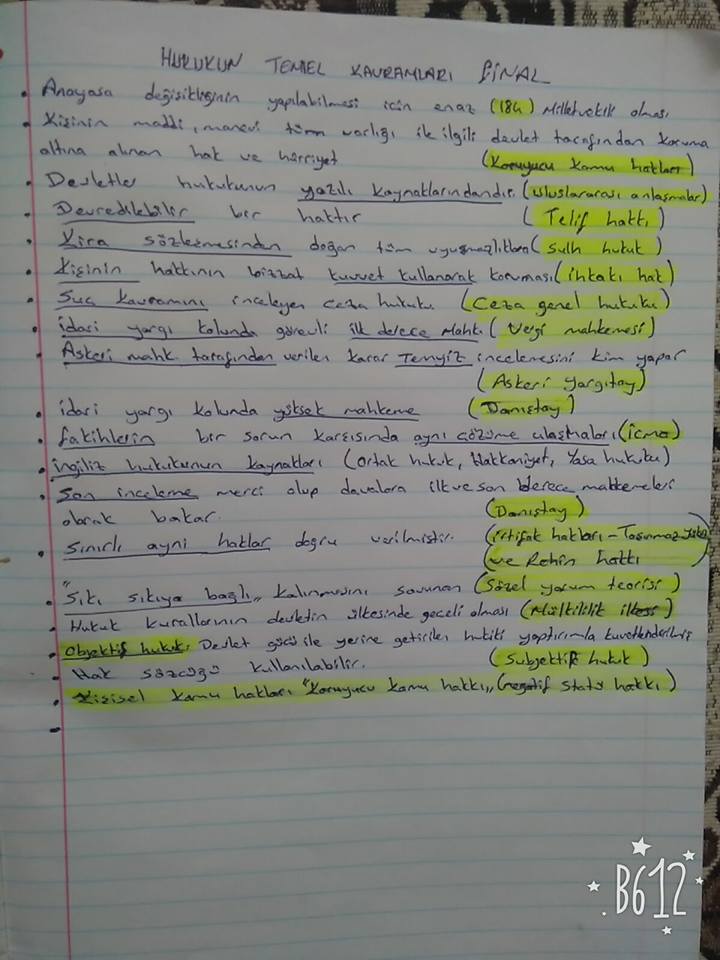 HUKUKUN TEMEL KAVRAMLARI FİNAL
• Anayasa değişikliğinin yapılabilmesi için enaz (184) Milletvekili olması
• Kişinin maddi, manevi tüm varlığı ile ilgili devlet tarafından koruma
altına alınan hak ve hürriyet (Koruyucu kamu hakları)
• Devletler hukukunun yazılı kaynaklarındandır. (uluslararası anlaşmalar)
• Devredilebilir bir haktır (Telif hakkı)
• Kira sözleşmesinden doğan tüm uyuşmazlıklara (sulh hukuk)
• Kişinin hakkının bizzat kuvvet kullanarak koruması (ihkakı hak)
• Suç kavramını inceleyen ceza hukuku. (Ceza genel hukuku)
• idari yargı kolunda görevli ilk derece Mahk. (Vergi mahkemesi)
• Askeri mahk. tarafından verilen karar Temyiz incelemesini kim yapar
(Askeri Yargıtay)
• idari yargı kolunda yüksek mahkeme (Danıştay)
• fakihlerin bir sorun karşısında aynı çözüme ulaşmaları (icma)
• ingiliz hukukunun kaynakları (Ortak hukuk, Hakkaniyet, Yasa hukuku)
• Son inceleme merci olup davalara ilk ve son derece mahkemeleri
olarak bakar. (Danıştay)
• Sınırlı ayni haklar doğru verilmiştir. (irtifak hakları - Taşınmaz yükü
ve Rehin hakkı
• "Sıkı sıkıya bağlı,, kalınmasını savunan (Sözel yorum teorisi)
• Hukuk kurallarının devletin ülkesinde geçeli olması (Mülkilik ilkesi)
• Objektif hukuk: Devlet gücü ile yerine getirilen hukiki yaptırımla kuvetlendirilmiş
• Hak sözcüğü kullanılabilir. (Subjektif hukuk)
• Kişisel kamu hakları "Koruyucu kamu hakkı,, (negatif statü hakkı)
-
B612